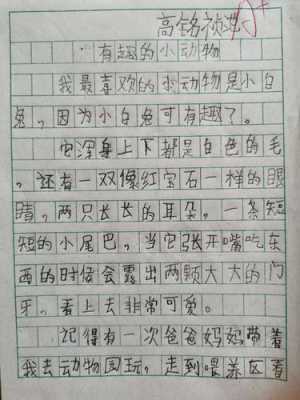 高铭祯 A+
有趣的小动物
我最喜欢的小动物是小白
兔，因为小白兔可有趣了。
它浑身上下都是白色的毛
，还有一双像红宝石一样的眼
睛，两只长长的耳朵，一条短
短的小尾巴，当它张开嘴吃东
西的时候会露出两颗大大的门
牙，看上去非常可爱。
记得有一次爸爸妈妈带着
我去动物园玩，走到喂养区看